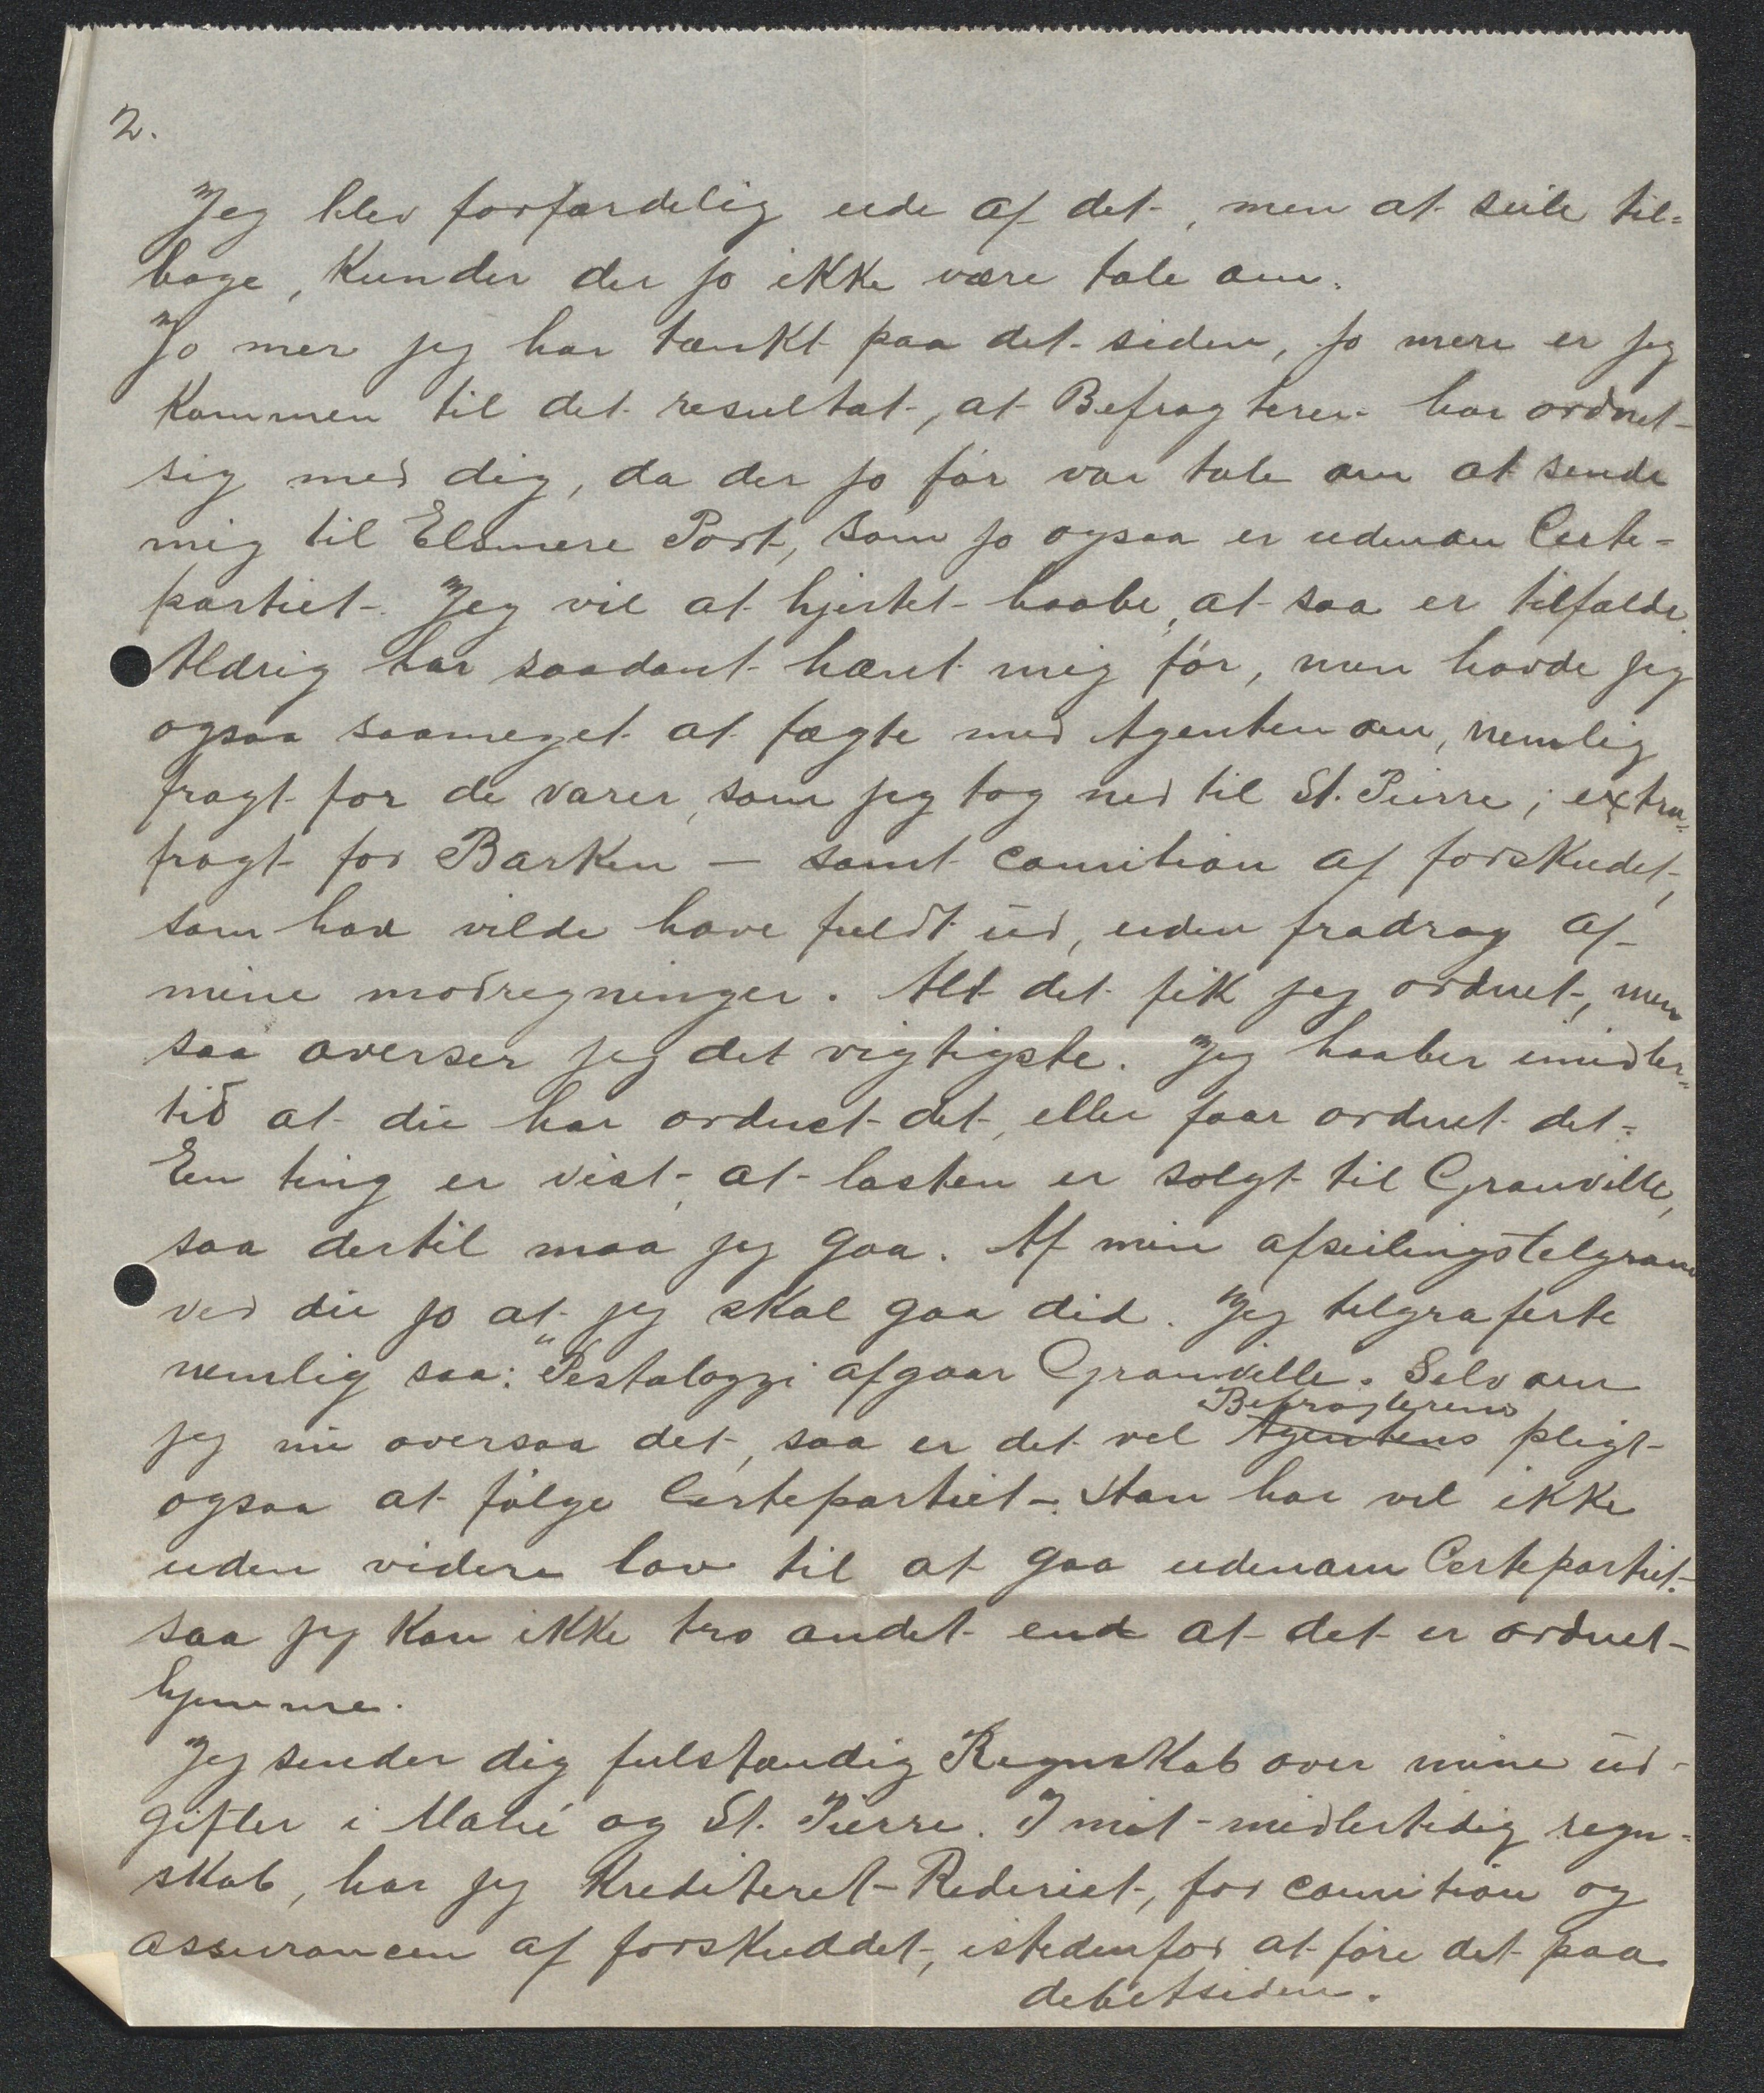 2.
Jeg blev forfærdelig ude af det, men at seile til=
bage, kunder der jo ikke være tale om.
Jo mer jeg har tænkt paa det siden, jo mere er jeg
kommen til det resultat, at Befragteren har ordnet
sig med dig, da der jo før var tale om at sende
mig til Elsmere Port, som jo ogsaa er udenom Certe=
partiet. Jeg vil at hjertet haabe, at saa er tilfælde.
Aldrig har saadant hænt mig før, men havde jeg
ogsaa saameget at fægte med Agenten om, nemlig
fragt for de varer, som jeg tog ned til St. Pierre; extra=
fragt for Barken — samt comition af forskudet,
som han vilde have fuldt ud, uden fradrag af
mine modregninger. Alt det fik jeg ordnet, men
saa overser jeg det vigtigste. Jeg haaber imidler=
tid at du har ordnet det, eller faar ordnet det.
Een ting er vist, at lasten er solgt til Granville,
saa dertil maa jeg gaa. Af min afseilingstelgram
ved du jo at jeg skal gaa did. Jeg telgraferte
nemlig saa: "Pestalozzi afgaar Granville. Selv om
jeg nu oversaa det, saa er det vel Agentens Befragterens pligt
ogsaa at følge Certepartiet. Han har vel ikke
uden videre lov til at gaa udenom Certepartiet.
saa jeg kan ikke tro andet end at det er ordnet
hjemme.
Jeg sender dig fulstændig Regnskab over mine ud-
gifter i Mahé og St. Pierre. I mit midlertidig regn=
skab, har jeg krediteret Rederiet, for comition og
assurancen af forskuddet, istedenfor at føre det paa
debetsiden.